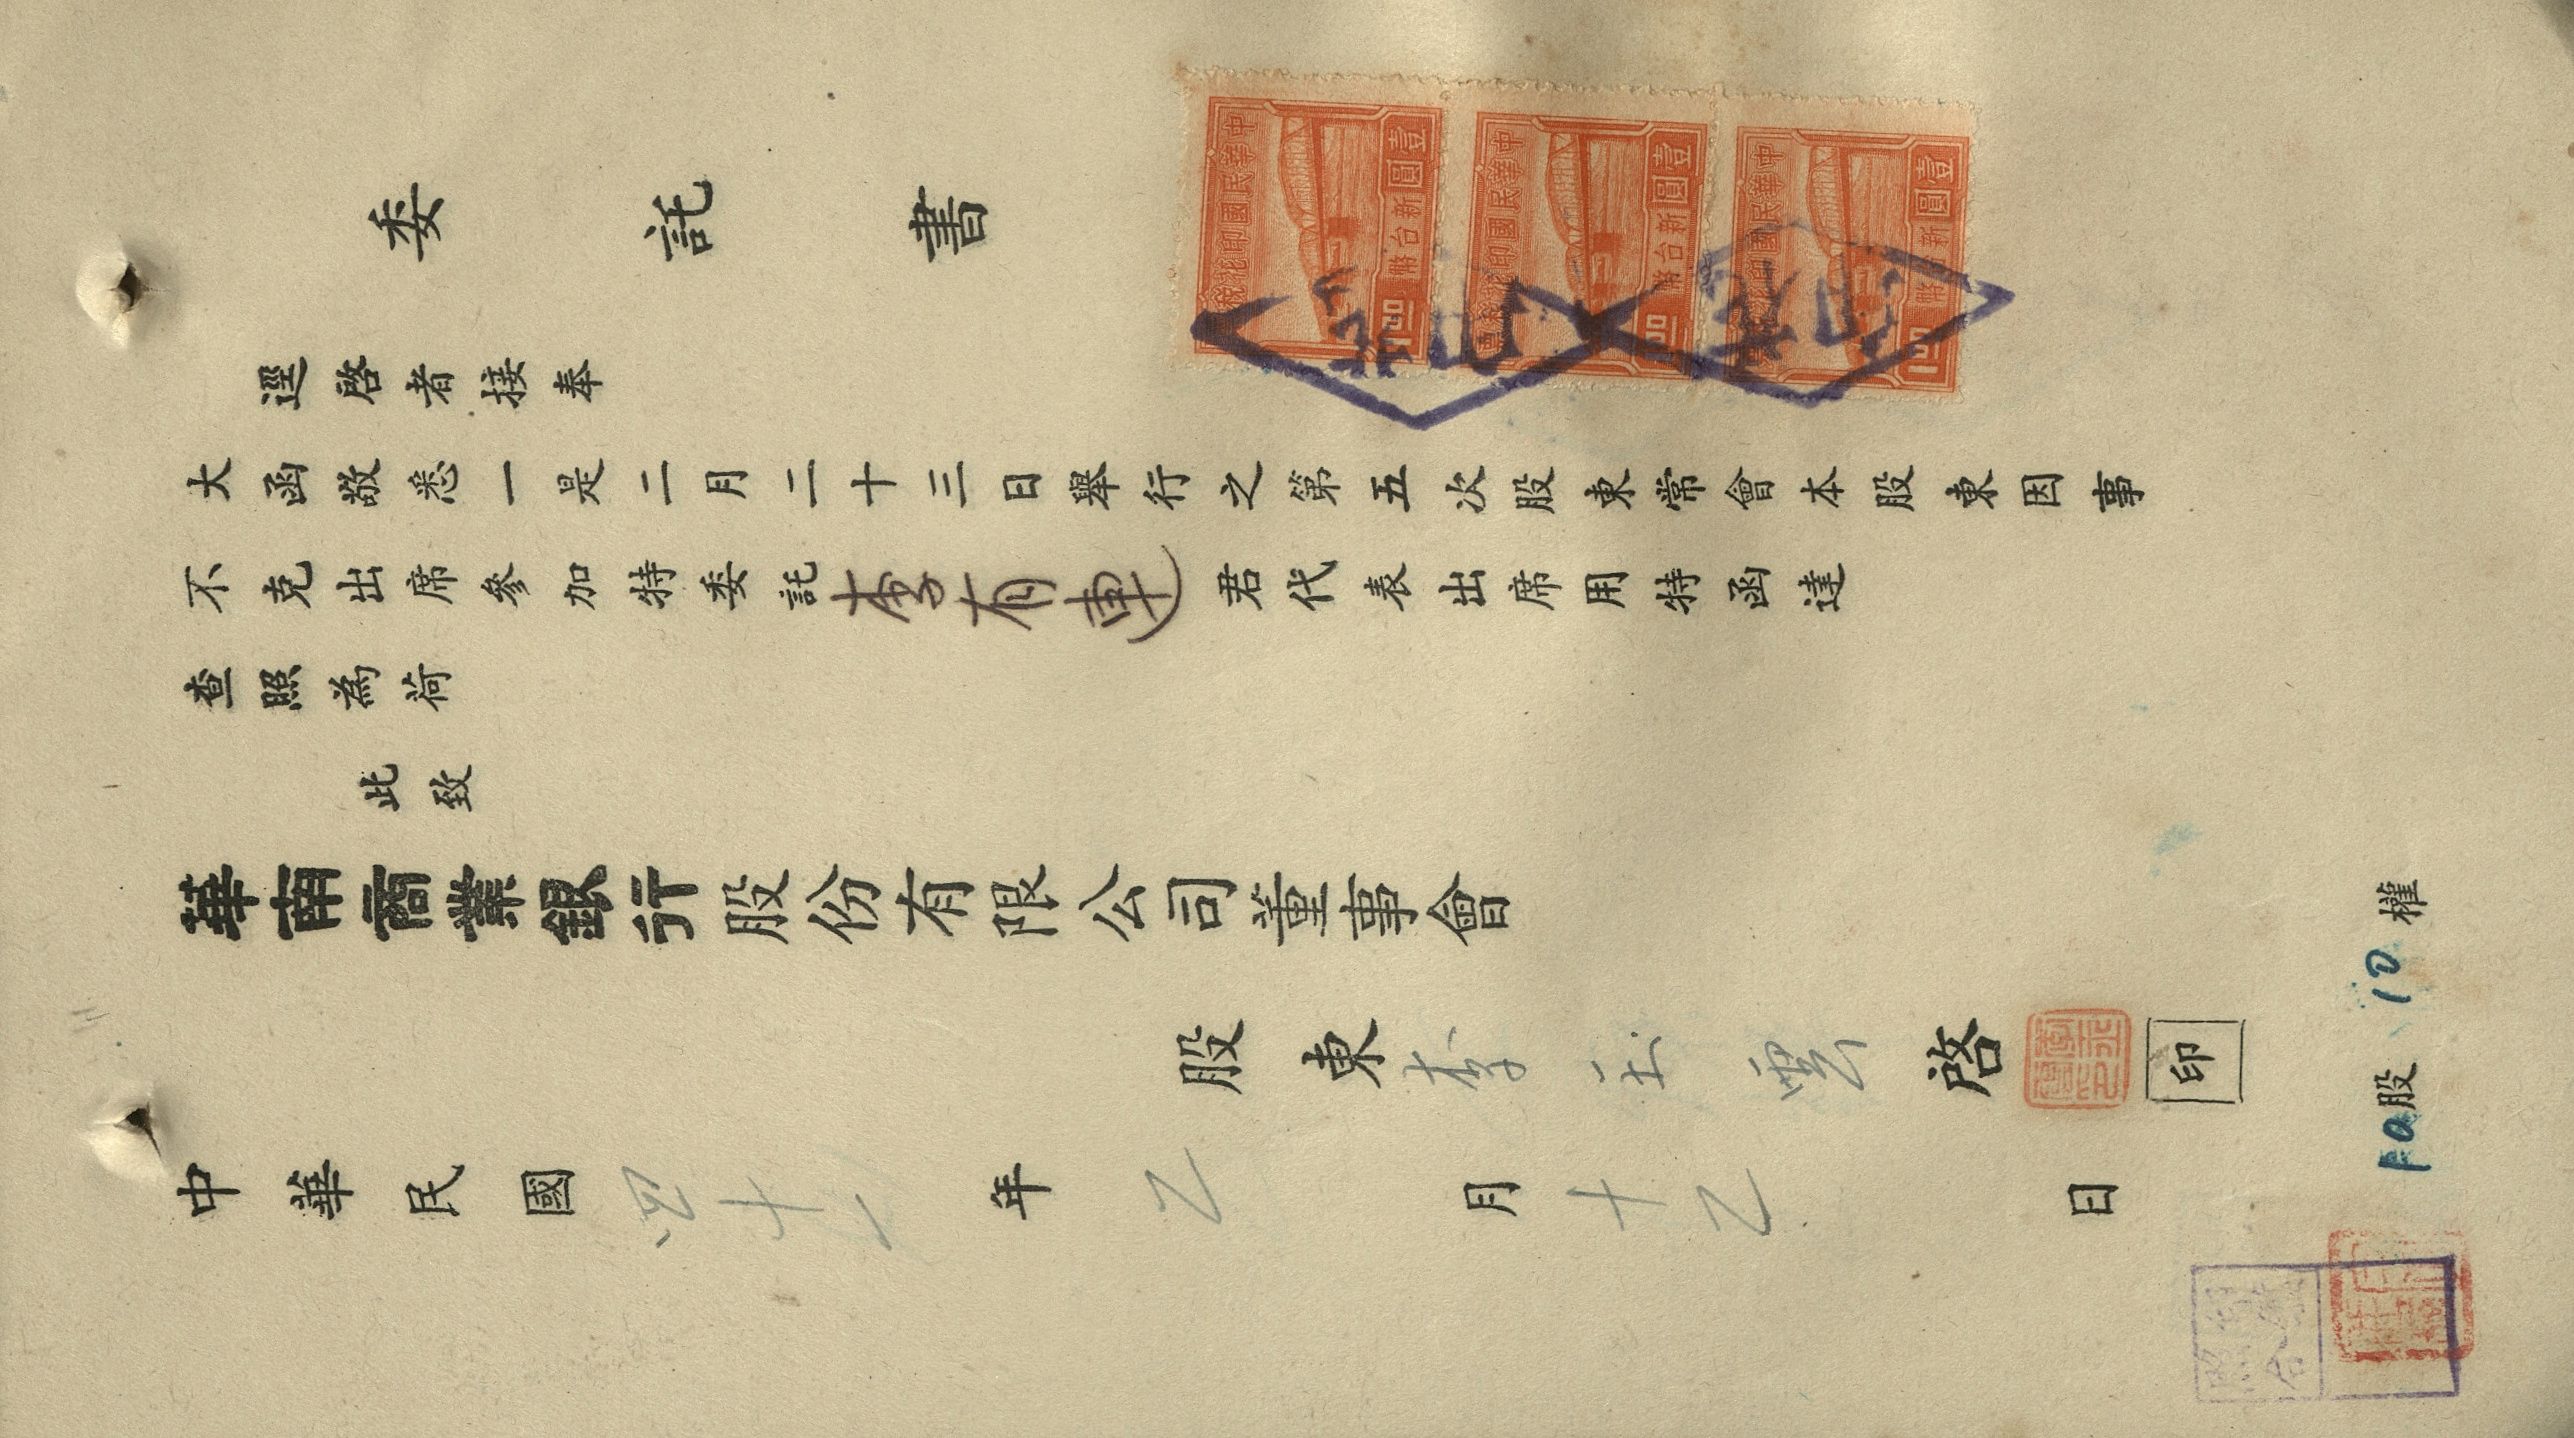 委託書
逕啓者接奉
大函敬悉一是二月二十三日舉行之第五次股東常會本股東因事
不克出席參加特委託李有連君代表出席用特函達
查照為荷
此致
華南商業銀行股份有限公司董事會
股東李玉雲啓 印
中華民國四十一年乙月十乙日
10股 10權
中華民國印花稅票
壹圓
新台幣
1.00
中華民國印花稅票
壹圓
新台幣
1.00
中華民國印花稅票
壹圓
新台幣
1.00